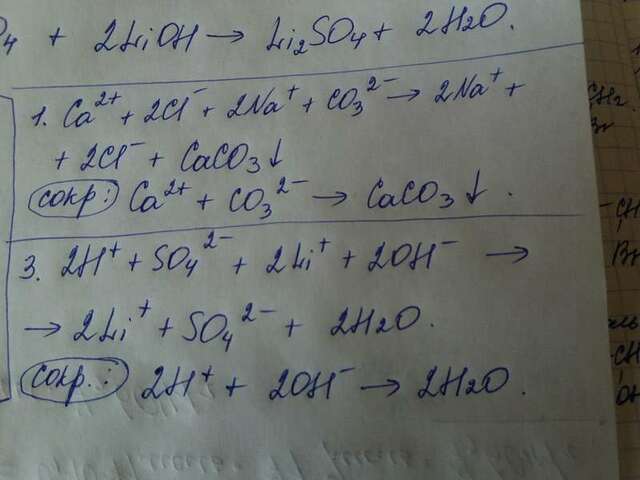 O₄ + 2LiOH → Li₂SO₄ + 2H₂O.
1. Ca²⁺ + 2Cl⁻ + 2Na⁺ + CO₃²⁻ → 2Na⁺ +
+ 2Cl⁻ + CaCO₃↓
сокр.: Ca²⁺ + CO₃²⁻ → CaCO₃↓.
3. 2H⁺ + SO₄²⁻ + 2Li⁺ + 2OH⁻ →
→ 2Li⁺ + SO₄²⁻ + 2H₂O.
сокр.: 2H⁺ + 2OH⁻ → 2H₂O.
CH₂
Br
-CH
Br
CH
OH